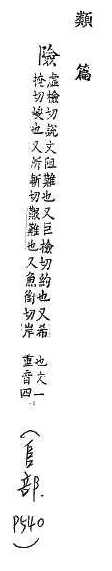 類篇
險 虛檢切說文阻難也又巨檢切約也又希
掩切峻也又所斬切艱難也又魚銜切岸
也文一
重音四
(𠂤部. P540)